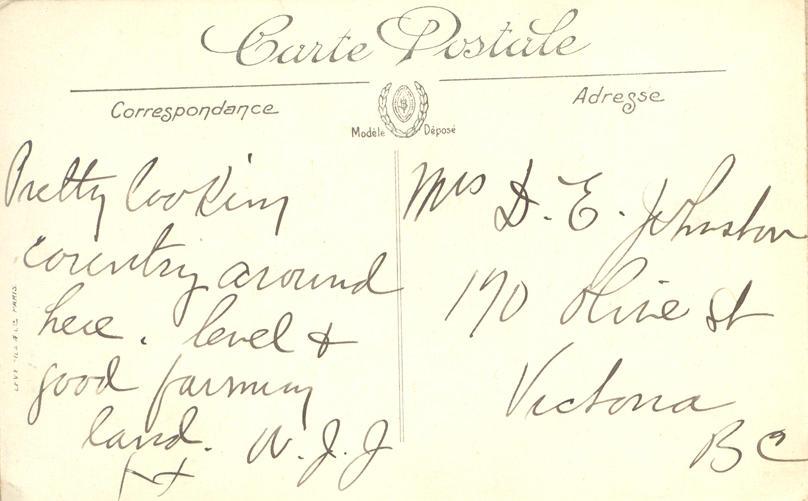 Carte Postale
Correspondance
Adresse
Modèle Déposé
Pretty looking
country around
here. level &
good farming
land. W. J. J
Mrs D. E. Johnston
170 Olive st
Victoria
BC
PARIS